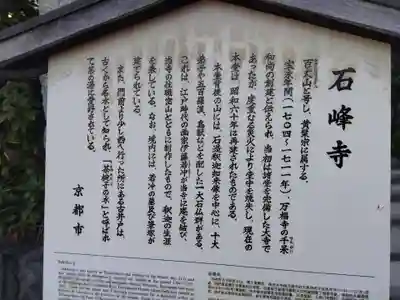 石峰寺
百丈山と号し、黄檗宗に属する。
宝永年間(一七〇四〜一七一一年)、万福寺の千杲
和尚の創建と伝えられ、当初は諸堂を完備した大寺で
あったが、度重なる災火により堂宇を焼失し、現在の
本堂は、昭和六十年に再建されたものである。
本堂背後の山には、石造釈迦如来像を中心に、十大
弟子や五百羅漢、鳥獣などを配した一大石仏群がある。
これは、江戸時代の画家伊藤若冲が当寺に庵を結び、
当寺の住職密山とともに制作したもので、釈迦の生涯
を表している。なお、境内には、若冲の墓及び筆塚が
建てられている。
また、門前より少し西へ行った所にある古井戸は、
古くから名水として知られ、「茶碗子の水」と呼ばれ
て茶の湯に愛好されている。
京都市